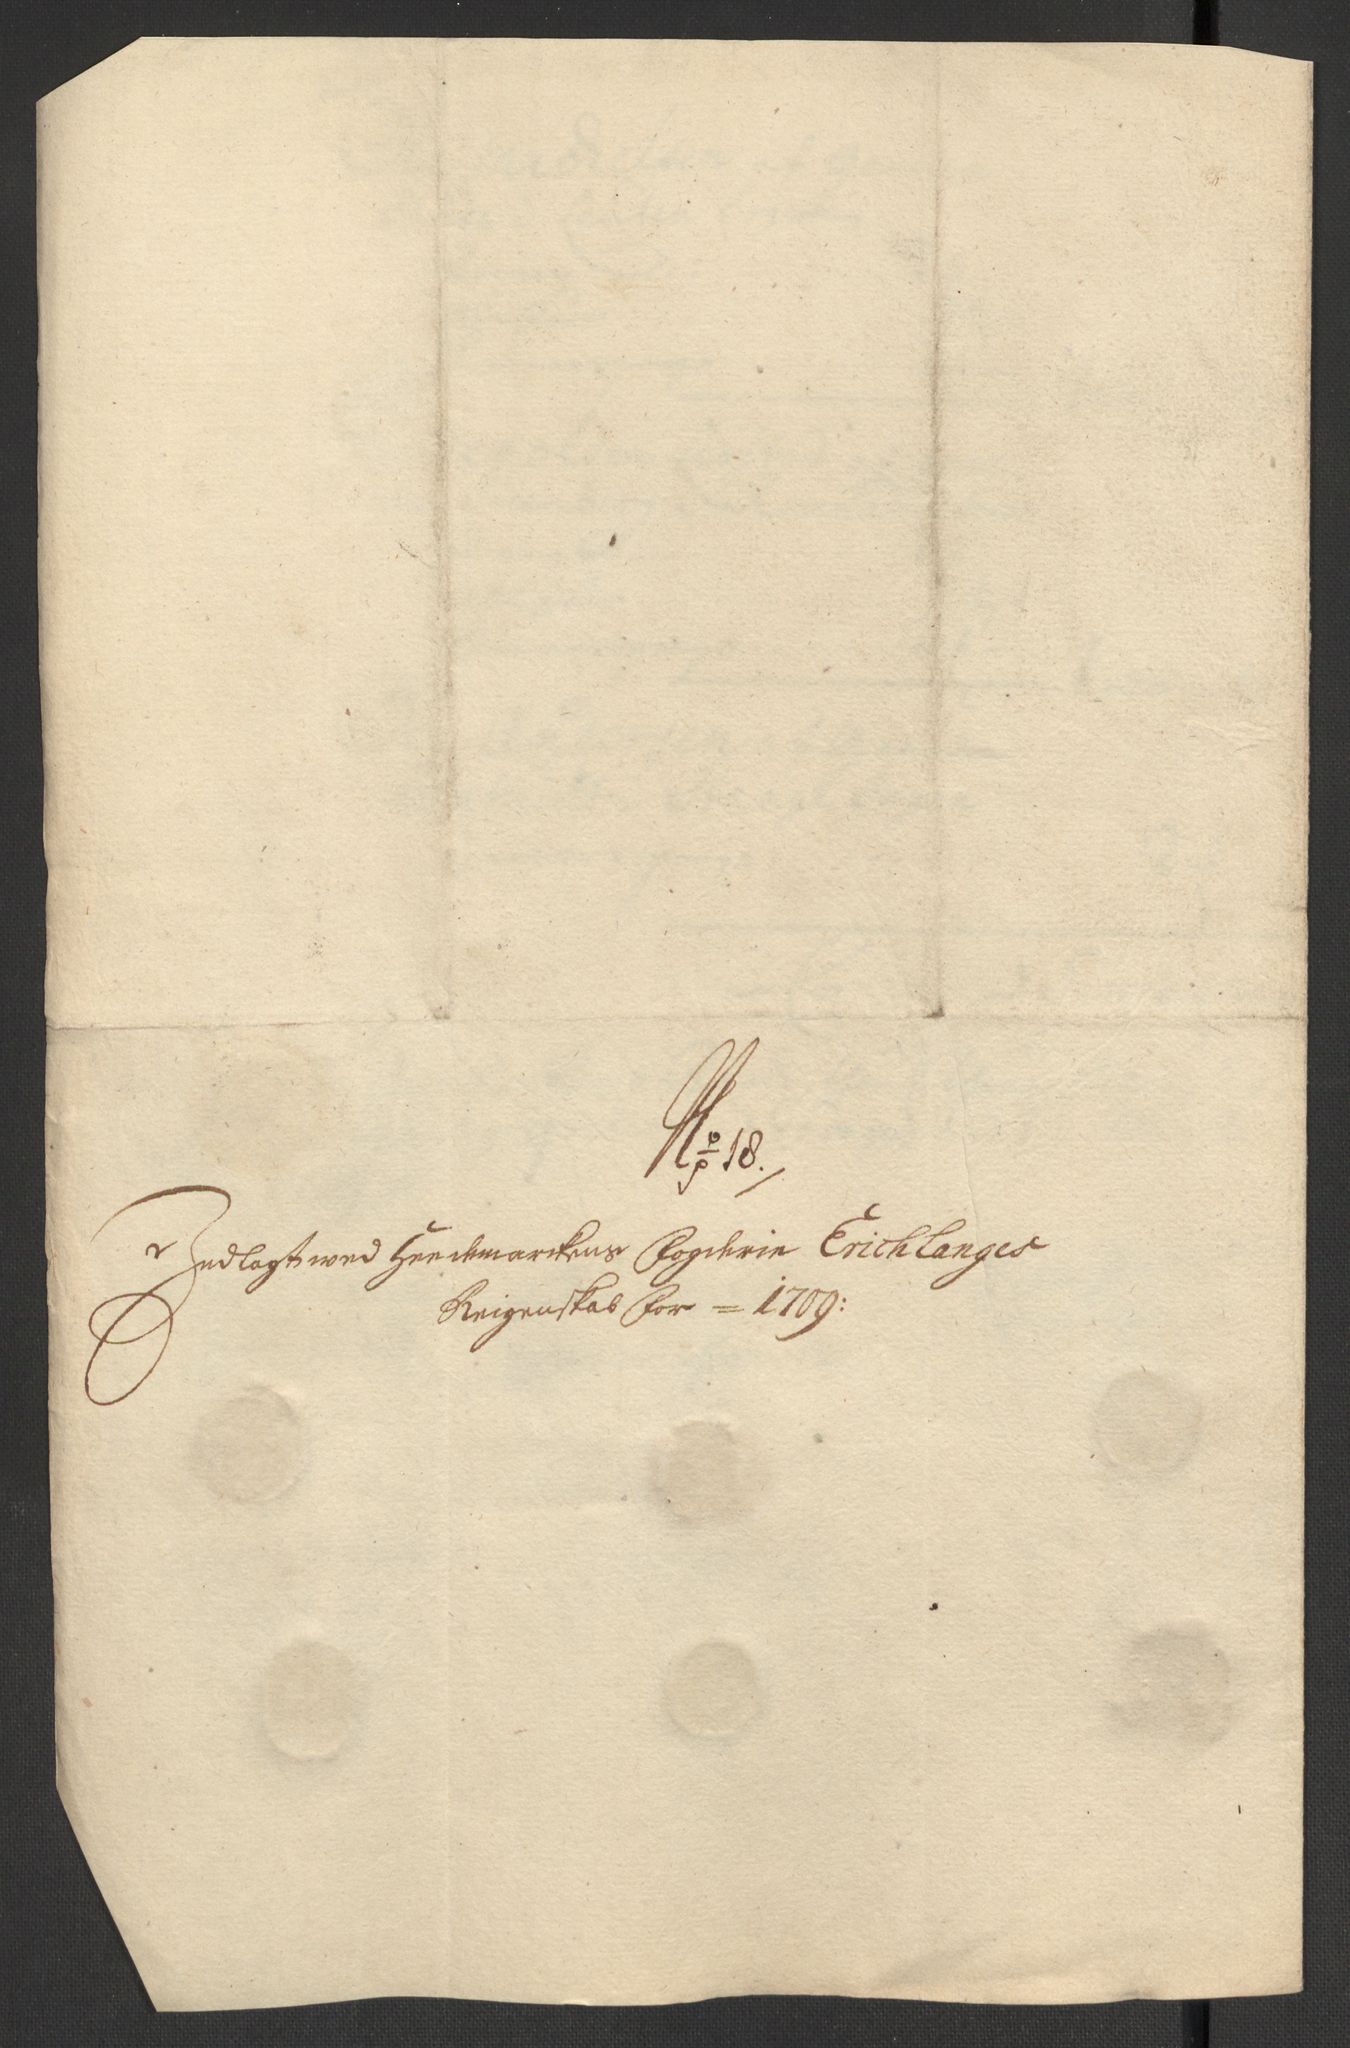 No 18.
Indlagt wed Heedemarckens Fogderie Erich Langes
Reigenskab for = 1709: